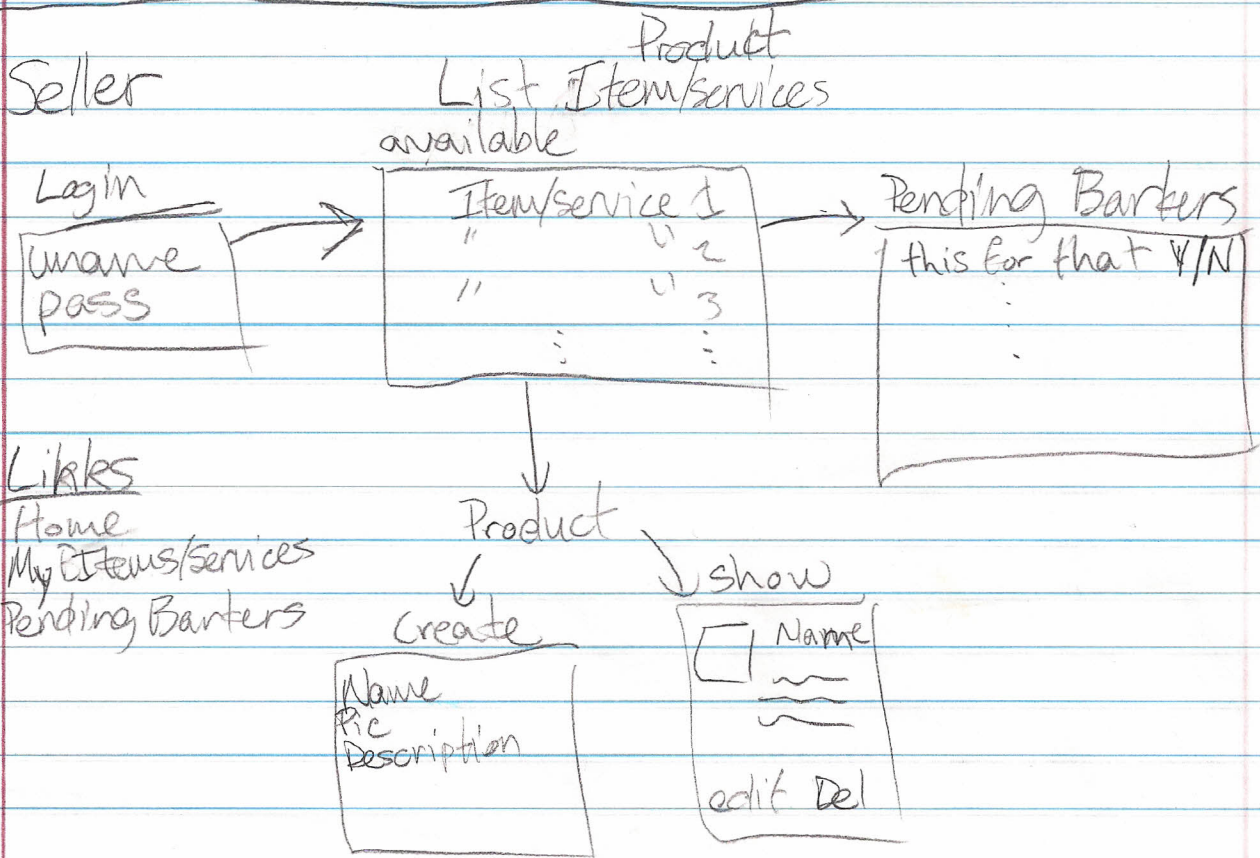 Product
Seller
List Item/services
available
Login
uname
pass
Item/service 1
" " 2
" " 3
Pending Barters
this for that Y/N
Links
Home
My Items/services
Pending Barters
Product
Create
Name
Pic
Description
show
Name
edit Del